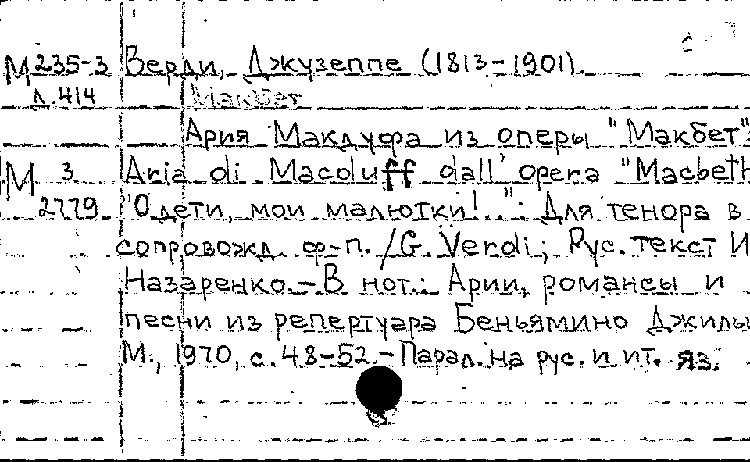 М 235-3 Верди, Джузеппе (1813-1901).
д.414 Макбет
Ария Макдуфа из оперы "Макбет"=
М 3 Aria di Macduff dall' opera "Macbeth
2779 "О дети, мои малютки!..": Для тенора в
сопровожд. ф-п. /G. Verdi; Рус. текст И
Назаренко.-В нот.: Арии, романсы и
песни из репертуара Беньямино Джилы
М., 1970, с. 48-52.-Парал. на рус. и ит. яз.